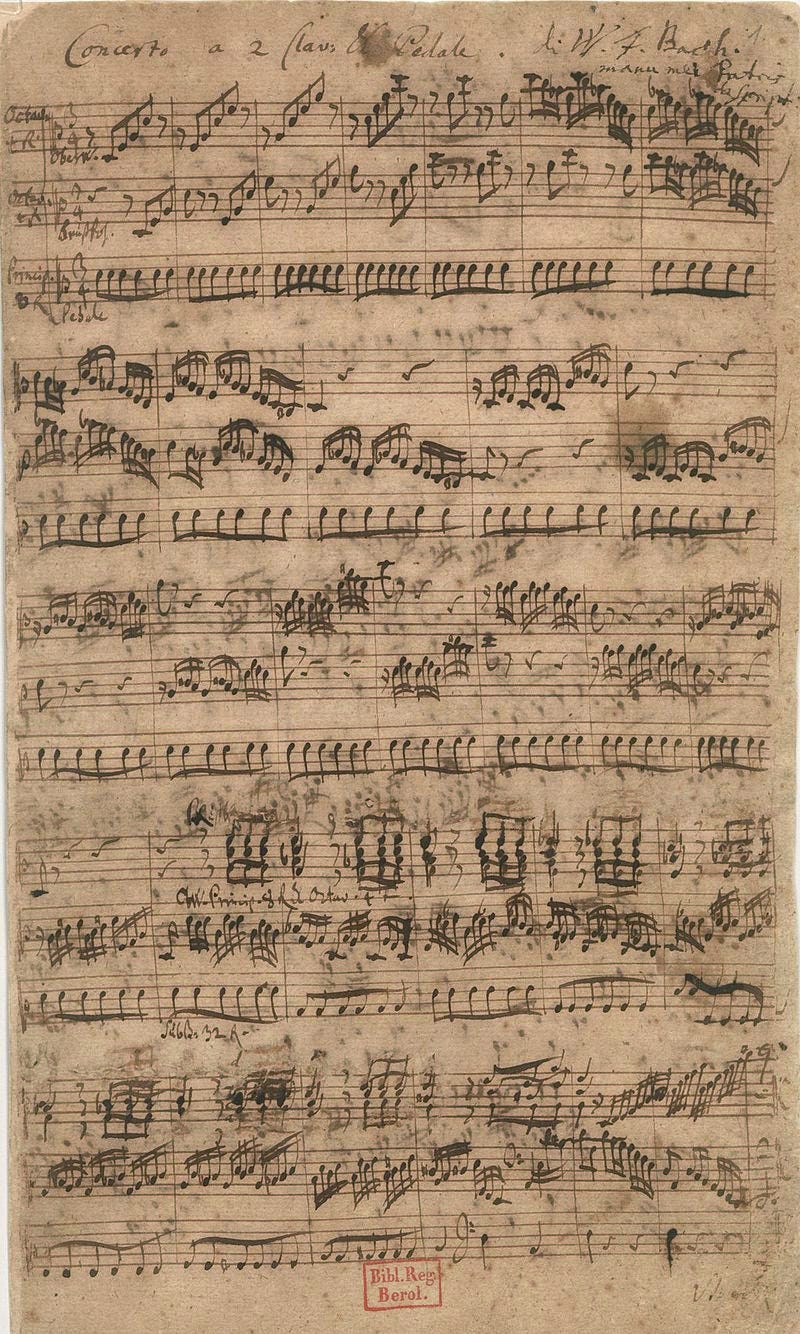 Concerto a 2 Clav: & Pedale. di W. F. Bach.
manu mei Patris
descript.
Octav.
4 R.
Oberw.
Octav.
4 R.
Brustpos.
Princip.
8 R.
Pedale
OW. Princip. 8 R. & Octav. 4
SubB. 32 R.
Bibl. Reg.
Berol.